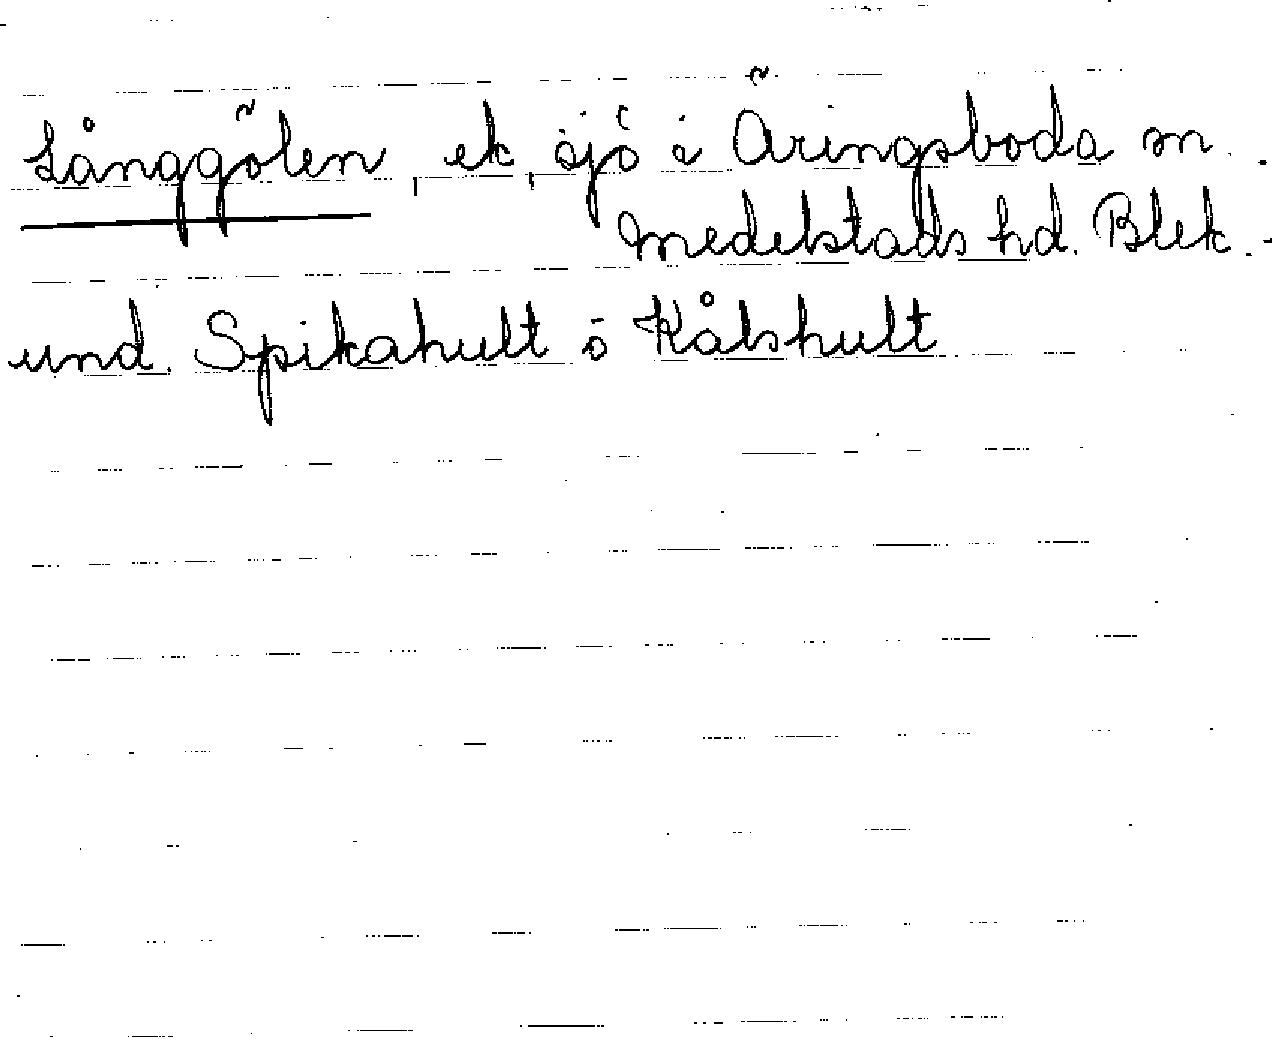 Långgölen, ek, sjö i Äringsboda sn.
Medelstads hd. Blek.
und. Spikahult ö Kålshult